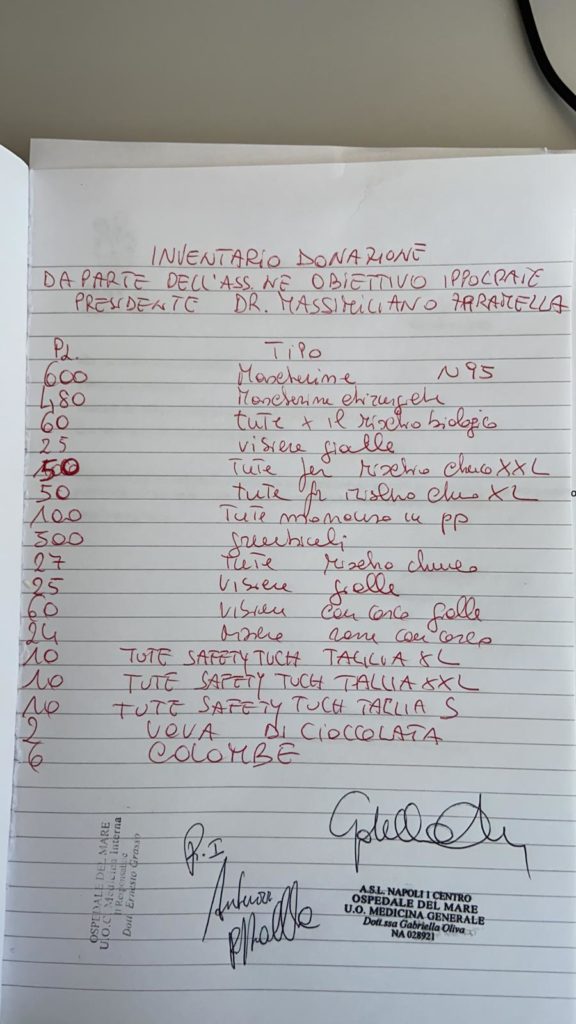 INVENTARIO DONAZIONE
DA PARTE DELL'ASS.NE OBIETTIVO IPPOCRATE
PRESIDENTE DR. MASSIMILIANO
PZ. TIPO
600 Mascherine N95
480 Mascherine chirurgiche
60 tute x il rischio biologico
25 visiere gialle
50 Tute per rischio chimico XXL
50 tute per rischio chimico XL
100 Tute monouso in pp
500
27 Tute rischio chimico
25 visiere gialle
60 visiere con casco gialle
24 visiere con casco
10 TUTE SAFETY TUCH TAGLIA XL
10 TUTE SAFETY TUCH TALLIA XXL
10 TUTE SAFETY TUCH TAGLIA S
2 UOVA DI CIOCCOLATA
6 COLOMBE
OSPEDALE DEL MARE
U.O.C. Medicina Interna
Il Responsabile
Dott. Ernesto Grasso
A.S.L. NAPOLI 1 CENTRO
OSPEDALE DEL MARE
U.O. MEDICINA GENERALE
Dott.ssa Gabriella Oliva
NA 028921